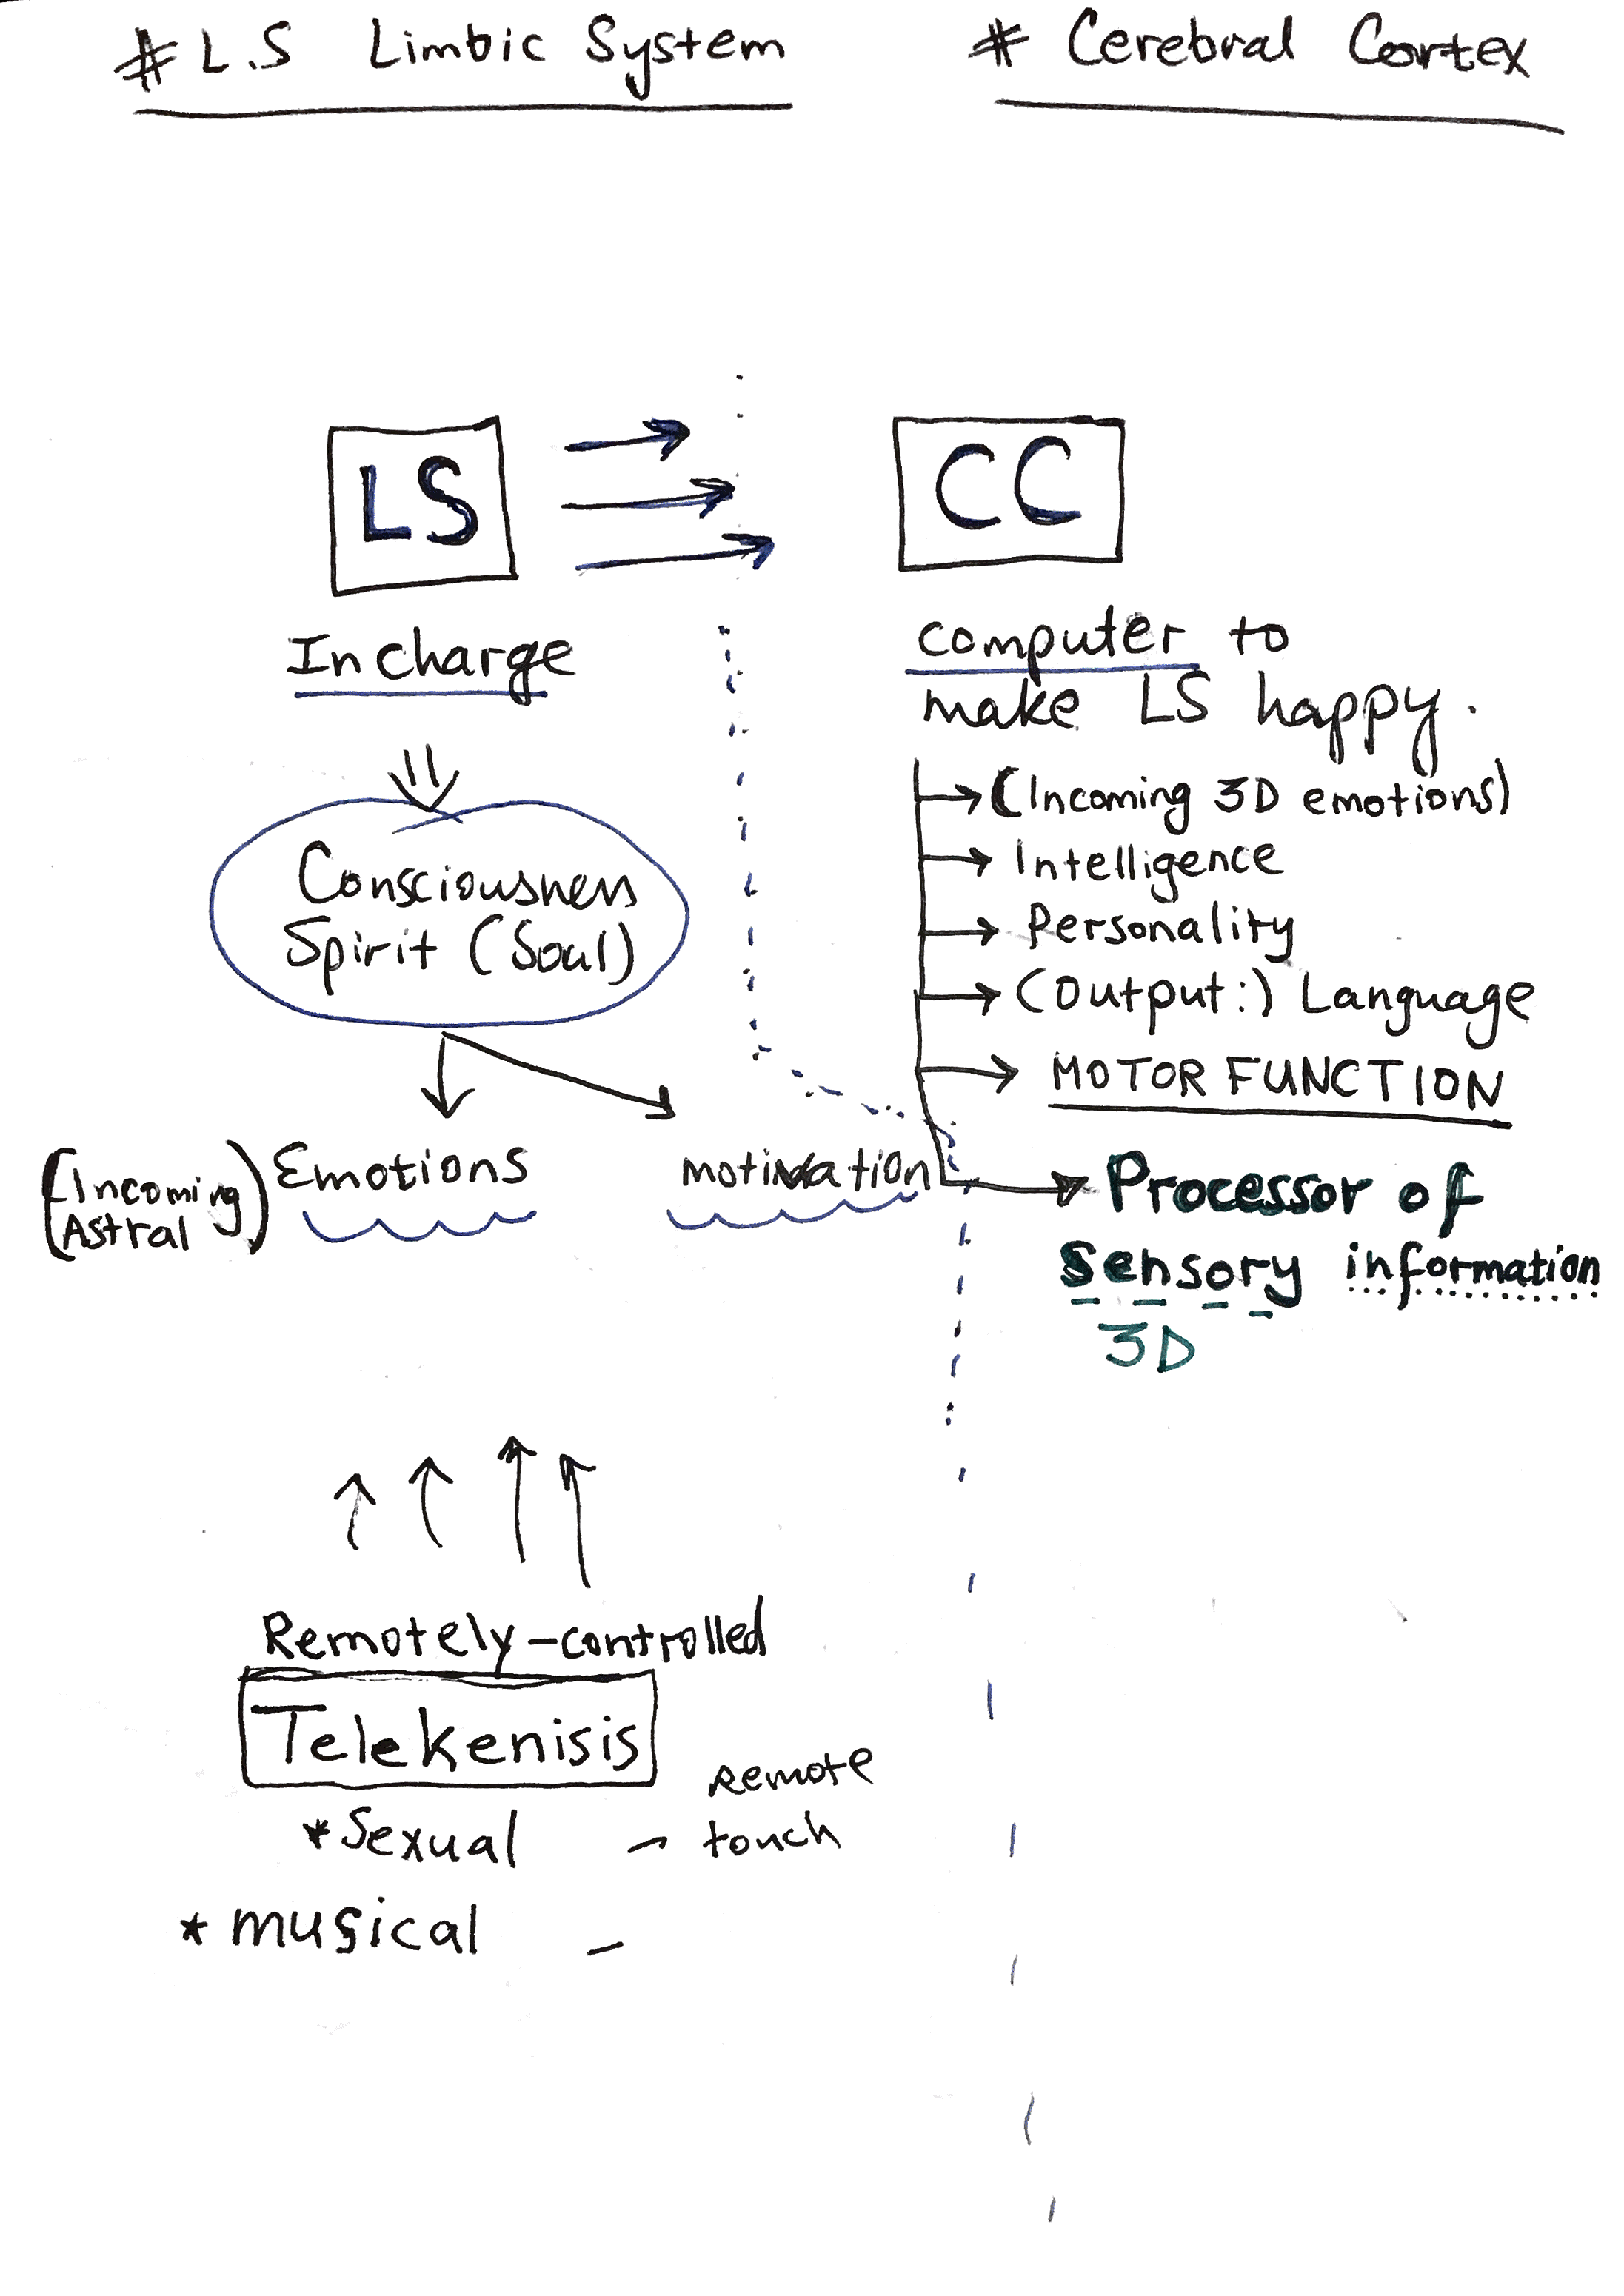 # L.S Limbic System
# Cerebral Cortex
LS
In charge
Consciousness
Spirit (Soul)
(Incoming
Astral)
Emotions
motivation
CC
computer to
make LS happy.
(Incoming 3D emotions)
Intelligence
Personality
(Output:) Language
MOTOR FUNCTION
Processor of
Sensory information
3D
Remotely-controlled
Telekenisis
*Sexual - Remote
touch
* musical -